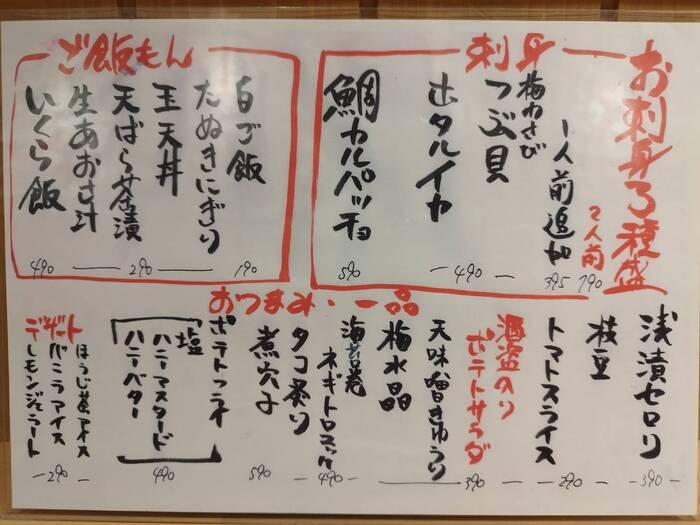 刺身
お刺身3種盛
2人前
790
1人前追加
395
梅わさび
つぶ貝
ホタルイカ
490
鯛カルパッチョ
590
ご飯もん
白ご飯
190
たぬきにぎり
玉天丼
天ばら茶漬
290
生あおさ汁
いくら飯
490
おつまみ・一品
浅漬セロリ
390
枝豆
トマトスライス
290
酒盗のり
ポテトサラダ
天味噌きゅうり
梅水晶
390
海苔巻
ネギトロユッケ
490
タコ祭り
煮穴子
590
ポテトフライ
塩
ハニーマスタード
ハニーバター
490
デザート
ほうじ茶アイス
バニラアイス
レモンジェラート
290